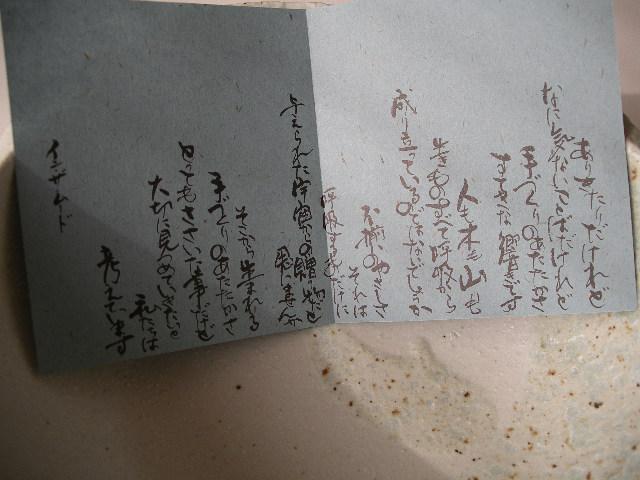 ありきたりだけれど
なに気ないことばだけれど
手づくりのあたたかさ
すてきな響きです
人も木も山も
生きものすべて呼吸から
成り立っているのではないでしょうか
お顔のやさしさ
それは
呼吸する者だけに
与えられた宇宙からの贈り物だと
思いませんか
そこから生まれる
手づくりのあたたかさ
とってもささいな事だけど
大切に見つめていきたい。
私たちは
考えています
インザムード